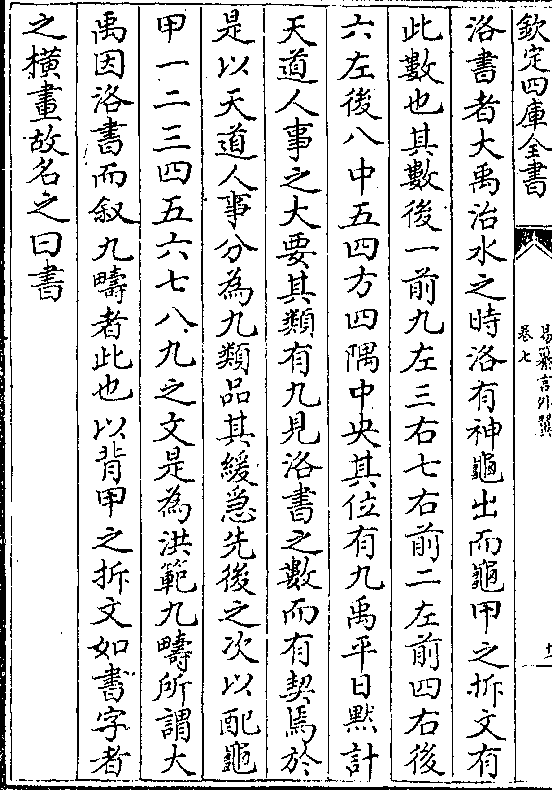 欽定四庫全書
易纂言外翼
卷七
十一
洛書者大禹治水之時洛有神龜出而龜甲之拆文有
此數也其數後一前九左三右七右前二左前四右後
六左後八中五四方四隅中央其位有九禹平日黙計
天道人事之大要其類有九見洛書之數而有契焉於
是以天道人事分為九類品其緩急先後之次以配龜
甲一二三四五六七八九之文是為洪範九疇所謂大
禹因洛書而敘九疇者此也以背甲之拆文如書字者
之橫畫故名之曰書